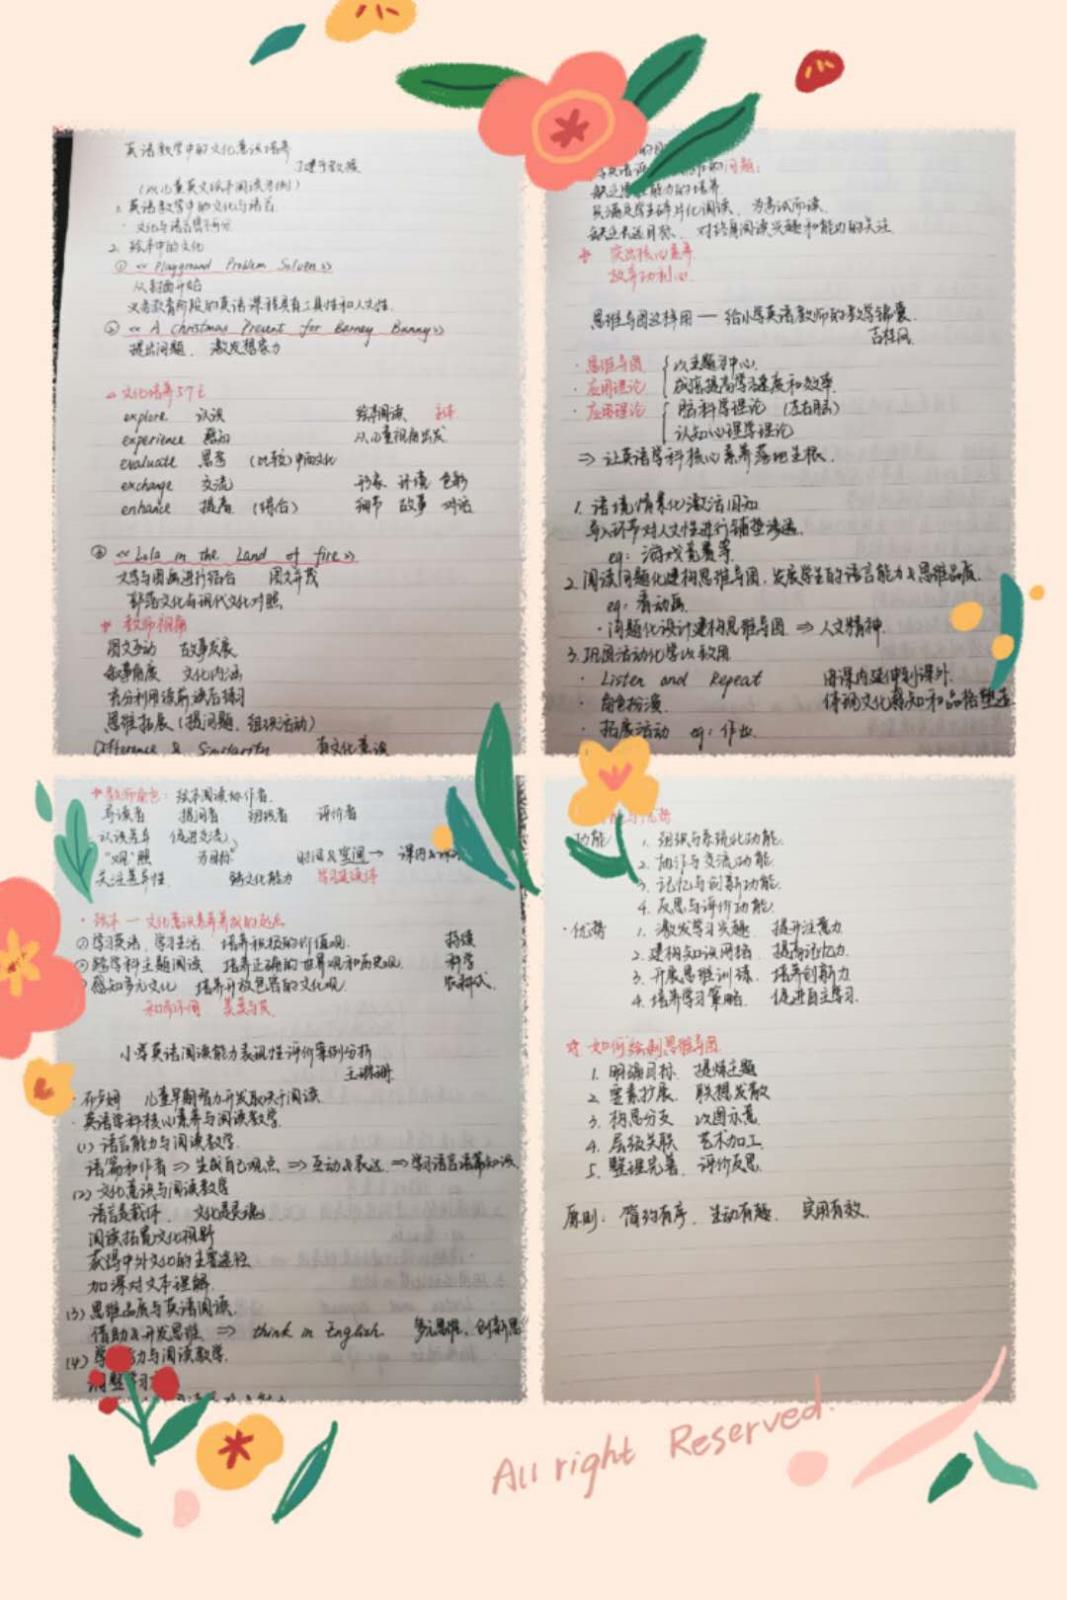 英语教学中的文化意识培养
丁建宁教授
(以儿童英文绘本阅读为例)
1. 英语教学中的文化与语言
· 文化与语言密不可分
2. 绘本中的文化
① 《Playground Problem Solvers》
从封面开始
义务教育阶段的英语课程具有工具性和人文性.
② 《A Christmas Present for Barney Bunny》
提出问题 激发想象力
文化培养5个E
explore 认读 绘本阅读
experience 感知 从儿童视角出发
evaluate 思考 (比较)中西文化
exchange 交流 形象 环境 色彩
enhance 提高 (结合) 细节 故事 对话
③ 《Lola in the Land of fire》
文字与图画进行结合 图文并茂
部落文化与现代文化对照
教师视角
图文互动 故事发展
叙事角度 文化内涵
充分利用读前读后练习
思维拓展 (提问题, 组织活动)
Difference & Similarity 有文化意识
问题:
缺乏 能力的培养
只满足学生碎片化阅读, 为考试而读.
缺乏长远目标, 对终身阅读兴趣和能力的关注
突出核心素养
放弃功利心
思维导图这样用 — 给小学英语教师的教学锦囊
吉桂凤
· 思维导图 { 以主题为中心
· 应用理论 成倍提高学习速度和效率
· 应用理论 { 脑科学理论 (左右脑)
认知心理学理论
⇒ 让英语学科核心素养落地生根.
1. 语境情景化激活旧知
导入环节对人文性进行铺垫渗透
eg: 游戏竞赛等
2. 阅读问题化建构思维导图, 发展学生的语言能力&思维品质
eg: 看动画
· 问题化设计建构思维导图 ⇒ 人文精神
3. 巩固活动化学以致用
· Listen and Repeat 由课内延伸到课外.
· 角色扮演 体现文化感知和品格塑造
· 拓展活动 eg: 作业
教师角色: 绘本阅读协作者
导读者 提问者 组织者 评价者
认读差异 促进交流
时间&空间 → 课内&
关注差异性 跨文化能力
绘本 — 文化意识素养养成的起点
① 学习英语, 学习生活 培养积极的价值观 持续
② 跨学科主题阅读 培养正确的世界观和历史观 科学
感知多元文化 培养开放包容的文化观
和而不同 美美与共
小学英语阅读能力表现性评价案例分析
王琳珊
儿童早期智力开发取决于阅读
· 英语学科核心素养与阅读教学
(1) 语言能力与阅读教学
语篇和作者 ⇒ 生成自己观点 ⇒ 互动&表达 ⇒ 学习语言语篇知识
(2) 文化意识与阅读教学
语言是载体, 文化是灵魂
阅读拓宽文化视野
获得中外文化的主要途径
加深对文本理解
(3) 思维品质与英语阅读
借助&开发思维 ⇒ think in English 多元思维, 创新思
(4) 学 力与阅读教学
调整学习
功能 1. 组织与系统化功能
2. 协作与交流功能
3. 记忆与创新功能
4. 反思与评价功能
· 优势 1. 激发学习兴趣 提升注意力
2. 建构知识网络 提高记忆力
3. 开展思维训练 培养创新力
4. 培养学习策略 促进自主学习
如何绘制思维导图
1. 明确目标 提炼主题
2. 要素扩展 联想发散
3. 构思分支 以图示意
4. 层级关联 艺术加工
5. 整理完善 评价反思
原则: 简约有序, 生动有趣 实用有效
All right Reserved.